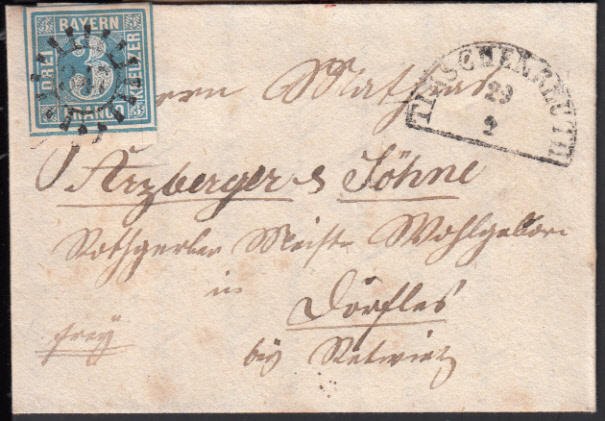 BAYERN
DREI
KREUZER
FRANCO
TIRSCHENREUTH
29
9
Herrn Mathias
Arzberger & Söhne
Rothgerber Meister Wohlgeborn
in
Dörfles
frey
bey Retwitz